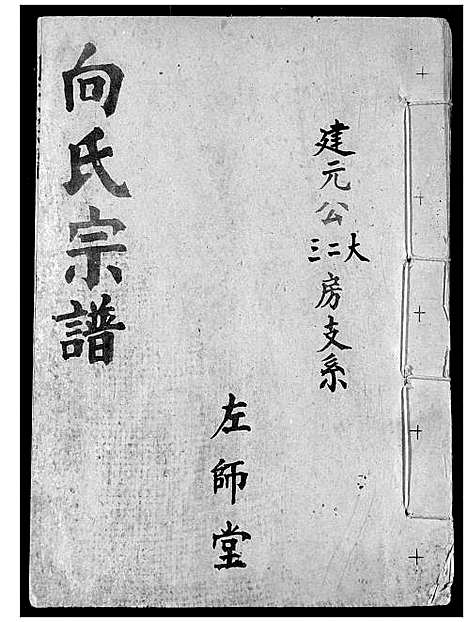 建元公大二三房支系
左師堂
向氏宗譜